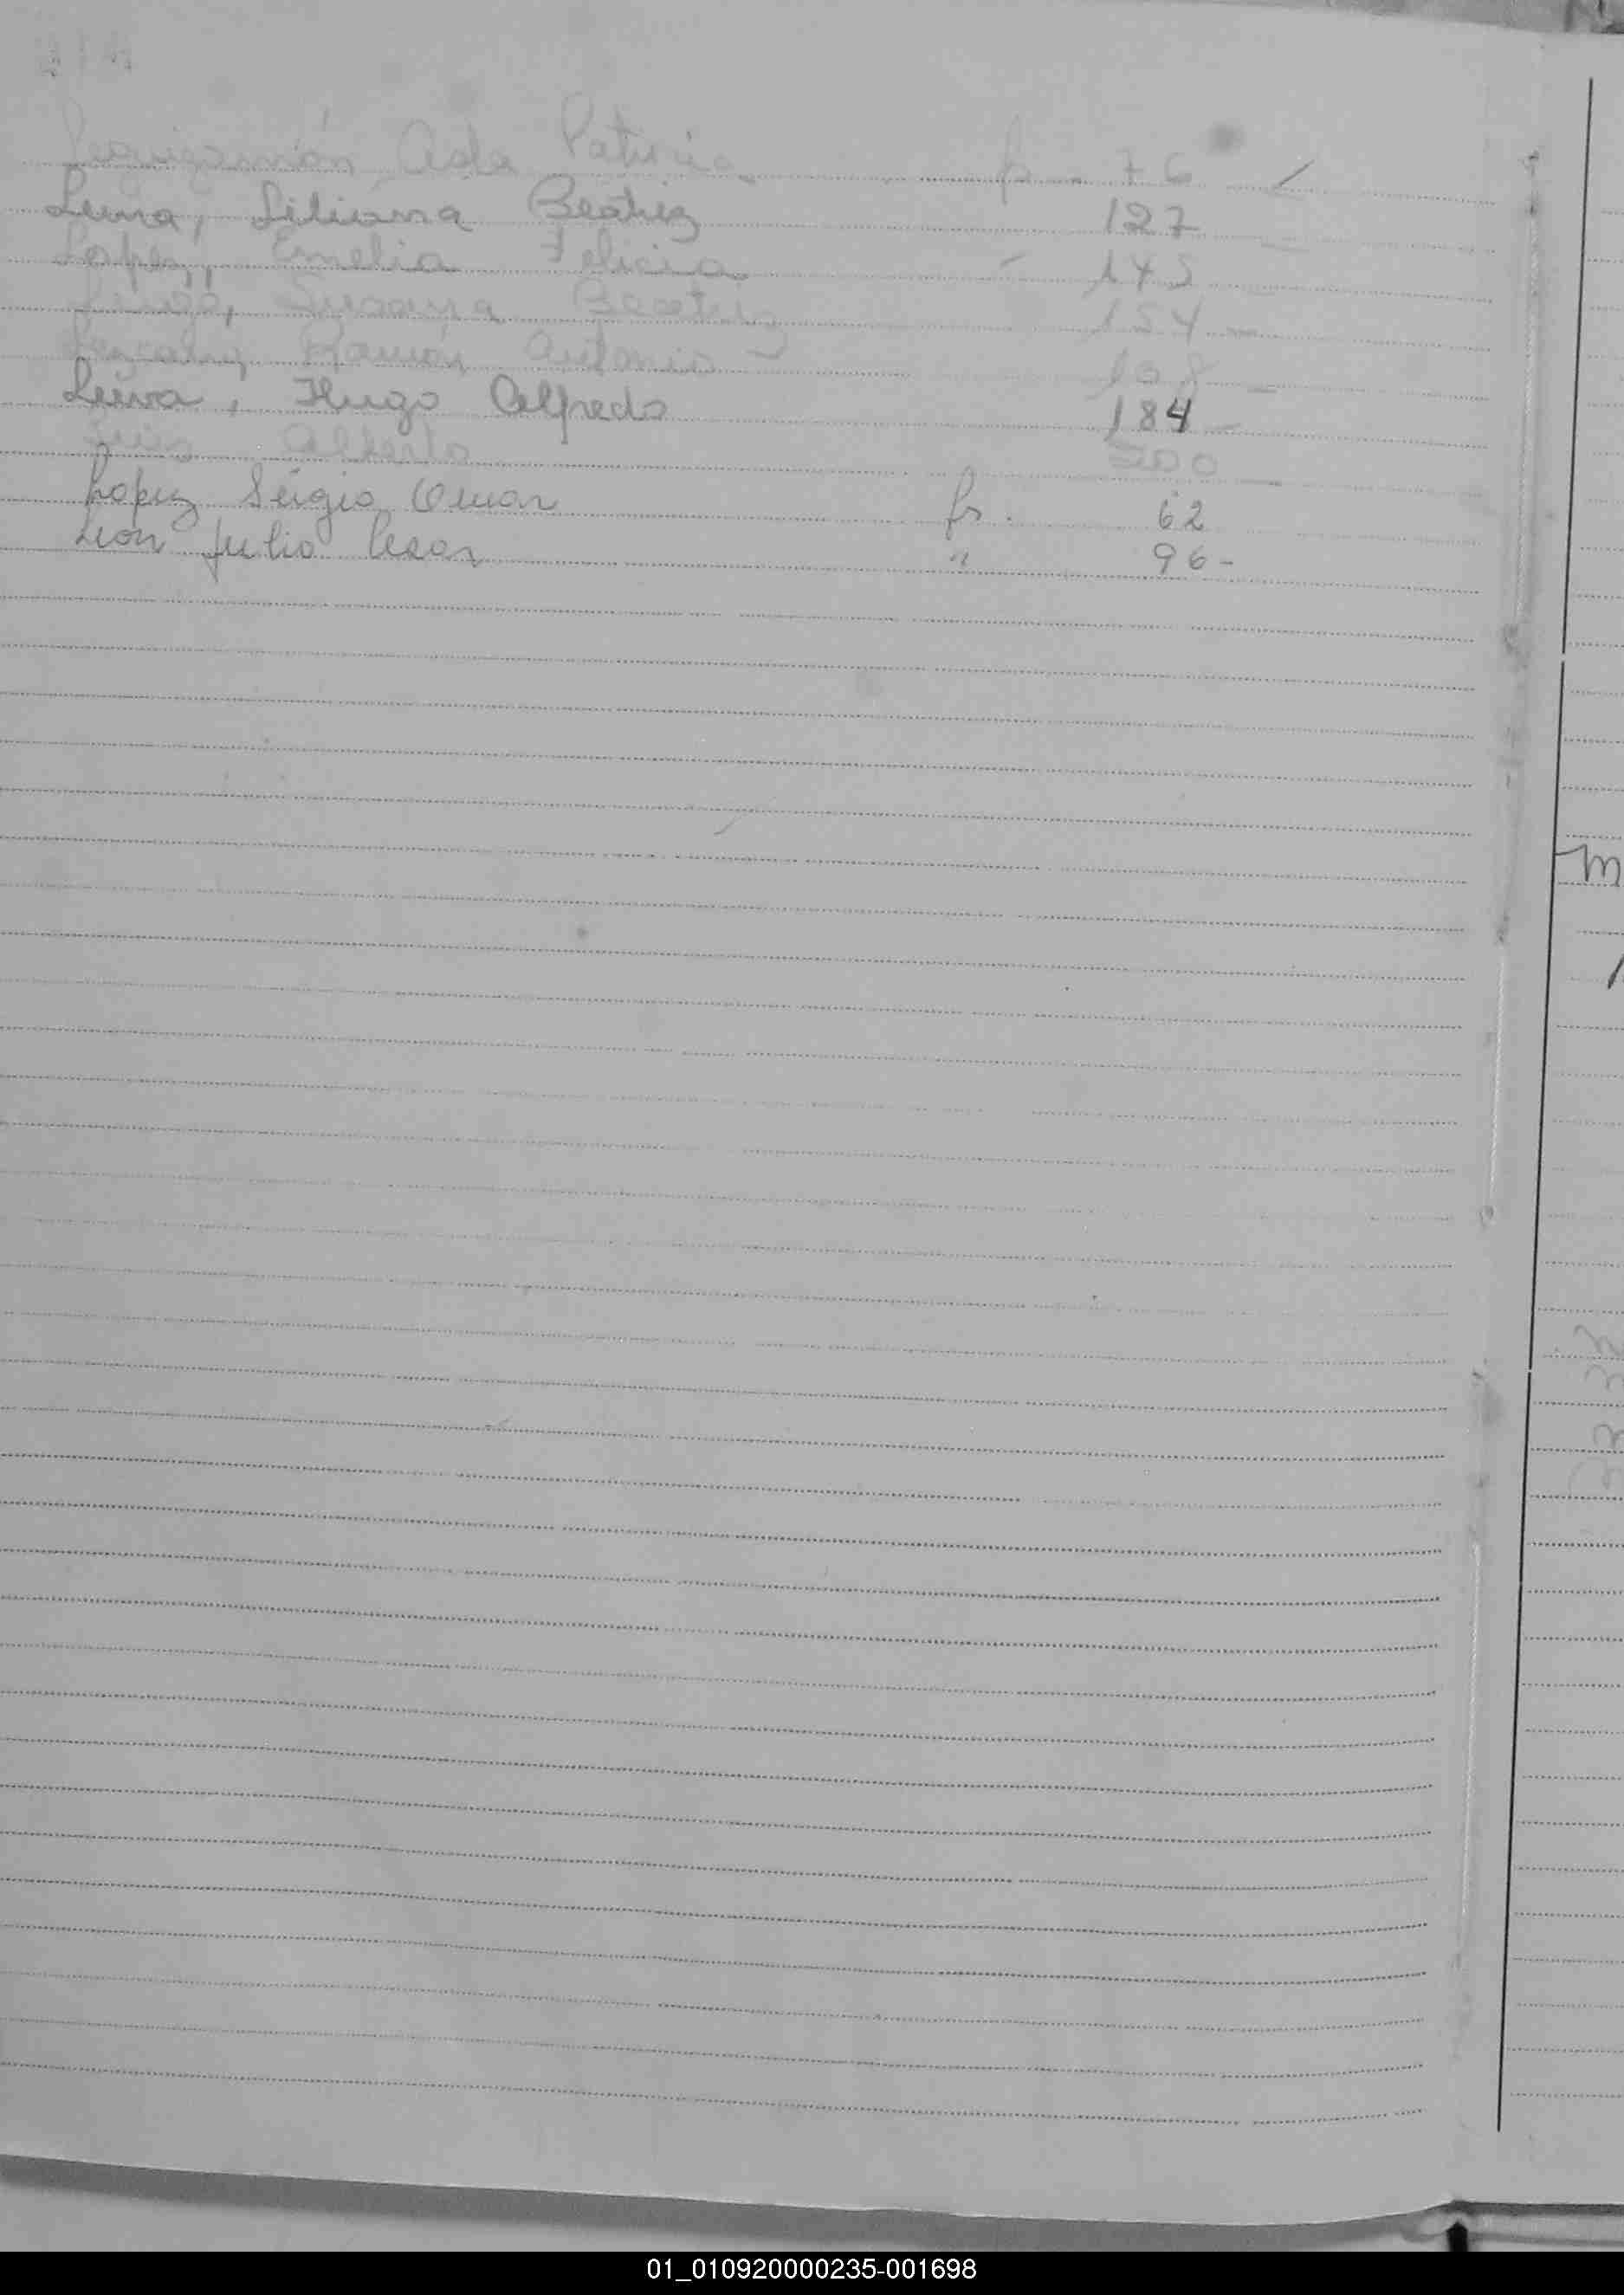 Leguizamón Ada Patricia f - 76
Luna, Liliana Beatriz 127 -
Lopez, Emelia Felicia 145 -
Susana Beatriz 154 -
Ramón Antonio 108 -
Leiva, Hugo Alfredo 184 -
Luis Alberto 200 -
Lopez Sergio Omar fs. 62
Leon Julio Cesar " 96 -
01_010920000235-001698